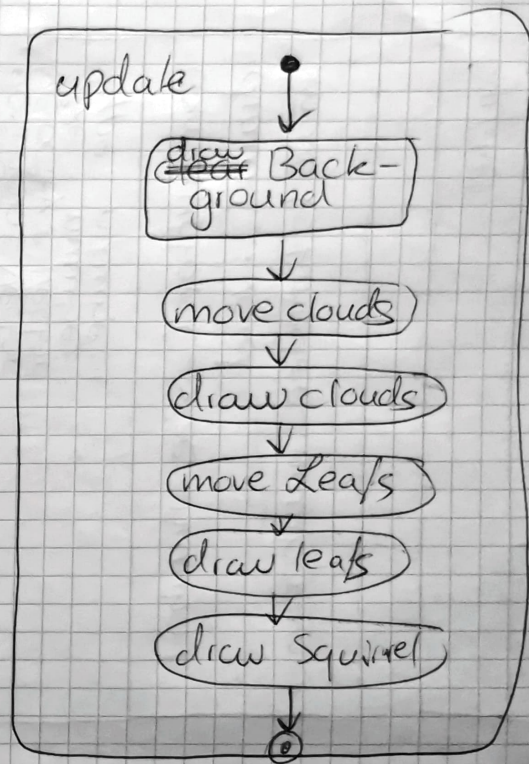 update
draw
clear Back-
ground
move clouds
draw clouds
move Leafs
draw leafs
draw Squirrel